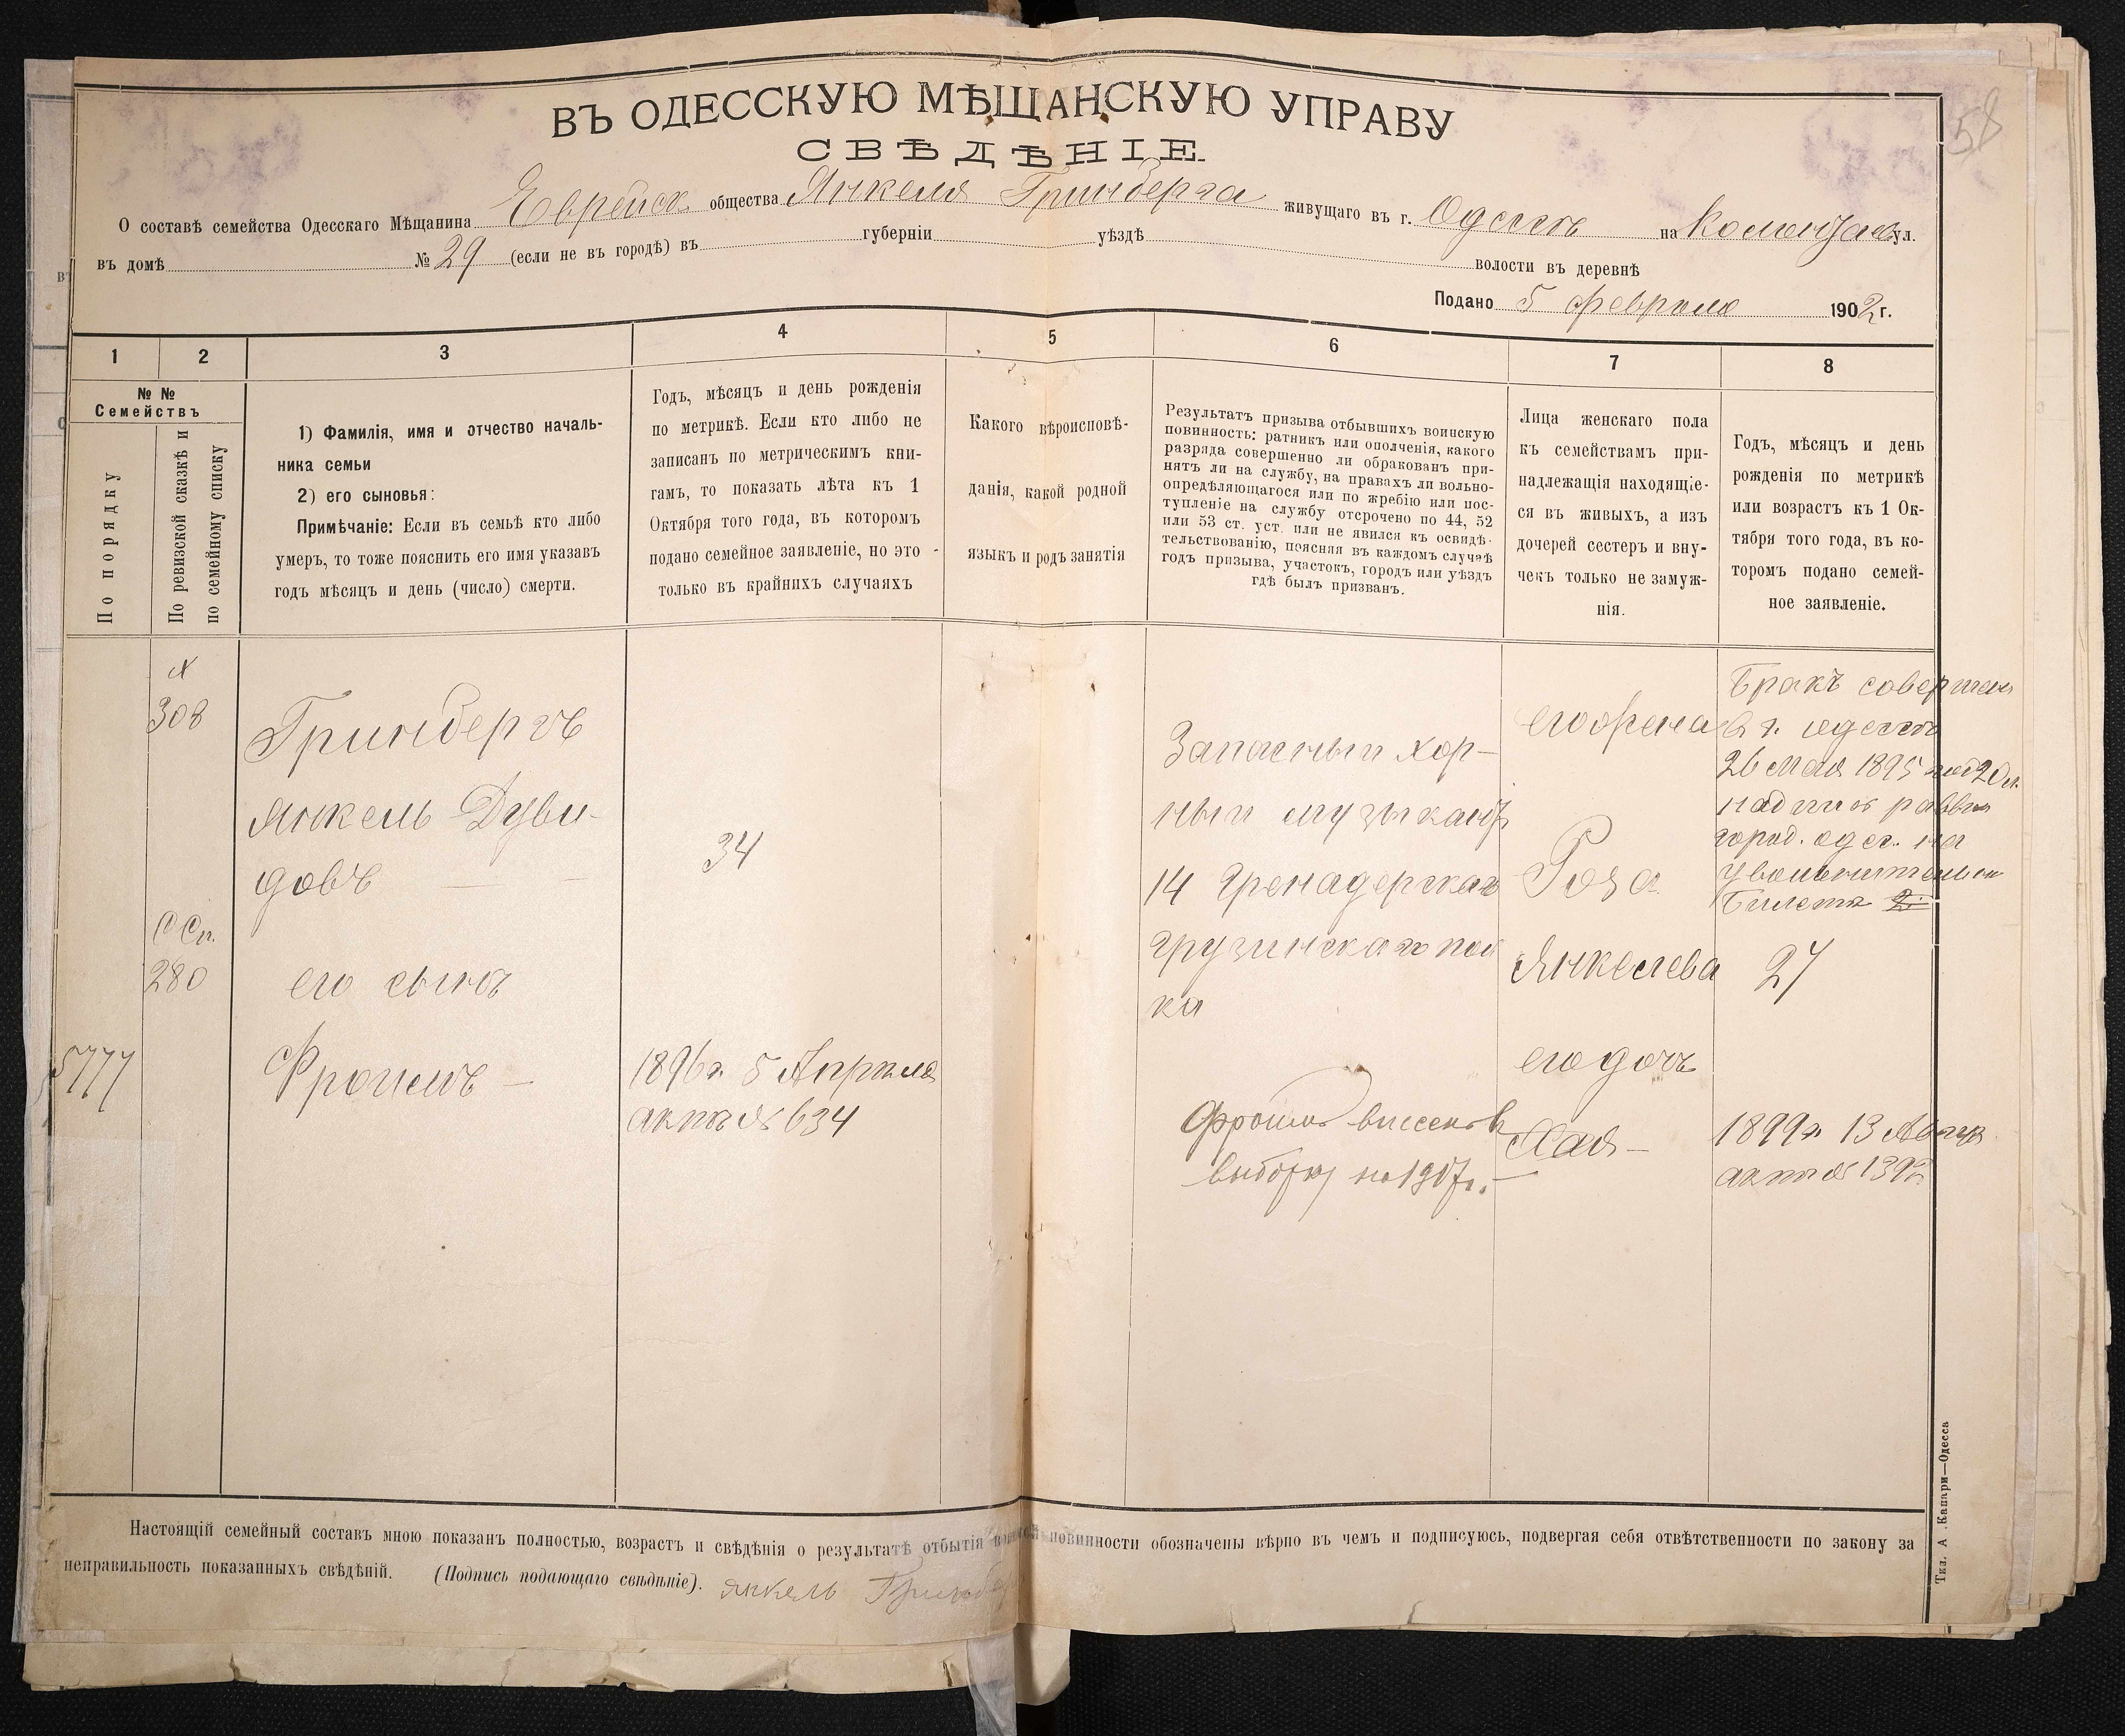 58
ВЪ ОДЕССКУЮ МѢЩАНСКУЮ УПРАВУ
СВѢДѢНІЕ.
О составѣ семейства Одесскаго Мѣщанина Еврейск общества Янкеля Гринберга живущаго въ г. Одессѣ на ул.
въ домѣ № 29 (если не въ городѣ) въ губерніи уѣздѣ волости въ деревнѣ
Подано 5 февраля 1902 г.
1 2 3 4 5 6 7 8
№ №
Семействъ
По порядку
По ревизской сказкѣ и
по семейному списку
1) Фамилія, имя и отчество началь-
ника семьи
2) его сыновья:
Примѣчаніе: Если въ семьѣ кто либо
умеръ, то тоже пояснить его имя указавъ
годъ мѣсяцъ и день (число) смерти.
Годъ, мѣсяцъ и день рожденія
по метрикѣ. Если кто либо не
записанъ по метрическимъ кни-
гамъ, то показать лѣта къ 1
Октября того года, въ которомъ
подано семейное заявленіе, но это -
только въ крайнихъ случаяхъ
Какого вѣроисповѣ-
данія, какой родной
языкъ и родъ занятія
Результатъ призыва отбывшихъ воинскую
повинность: ратникъ или ополченія, какого
разряда совершенно ли обракованъ при-
нятъ ли на службу, на правахъ ли вольно-
опредѣляющагося или по жребію или пос-
тупленіе на службу отсрочено по 44, 52
или 53 ст. уст. или не явился къ освидѣ-
тельствованію, поясняя въ каждомъ случаѣ
годъ призыва, участокъ, городъ или уѣздъ
гдѣ былъ призванъ.
Лица женскаго пола
къ семействамъ при-
надлежащія находящіе-
ся въ живыхъ, а изъ
дочерей сестеръ и вну-
чекъ только не замуж-
нія.
Годъ, мѣсяцъ и день
рожденія по метрикѣ
или возрастъ къ 1 Ок-
тября того года, въ ко-
торомъ подано семей-
ное заявленіе.
308
Гринбергъ
Янкель Дуви-
довъ
34
С Сп.
280
его сынъ
5777
Фроимъ —
1896 г. 5 Апреля
актъ № 634
Запасный хор-
ный музыкантъ
14 Гренадерскаго
Грузинскаго пол
ка
Фроимъ внесенъ въ
выборку на 1917 г. —
его жена
Роза
Янкелева
его дочь
Хая —
Бракъ совершенъ
въ г. Одессѣ
26 мая 1895 года
надпись раввина
город. Одес. на
увольнительном
билетѣ
27
1899 г. 13
актъ №
Настоящій семейный составъ мною показанъ полностью, возрастъ и свѣдѣнія о результатѣ отбытія воинской повинности обозначены вѣрно въ чемъ и подписуюсь, подвергая себя отвѣтственности по закону за
неправильность показанныхъ свѣдѣній. (Подпись подающаго свѣдѣніе). Янкель Гринберг
Тип. А. Капари—Одесса